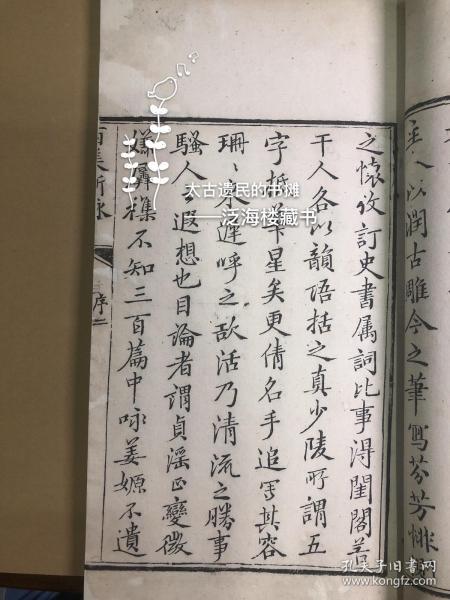 主人以潤古雕今之筆寫芬芳悱
之懷攷訂史書属詞比事淂閨閣若
干人各以韻语括之真少陵所謂五
字抵華星矣更倩名手追写其容
珊〻来遲呼之欲活乃清流之勝事
騷人之遐想也目論者謂貞淫正變微
嫌不知三百篇中咏姜嫄不遺
百美新詠
序二
太古遗民的书摊
——泛海楼藏书
孔夫子旧书网